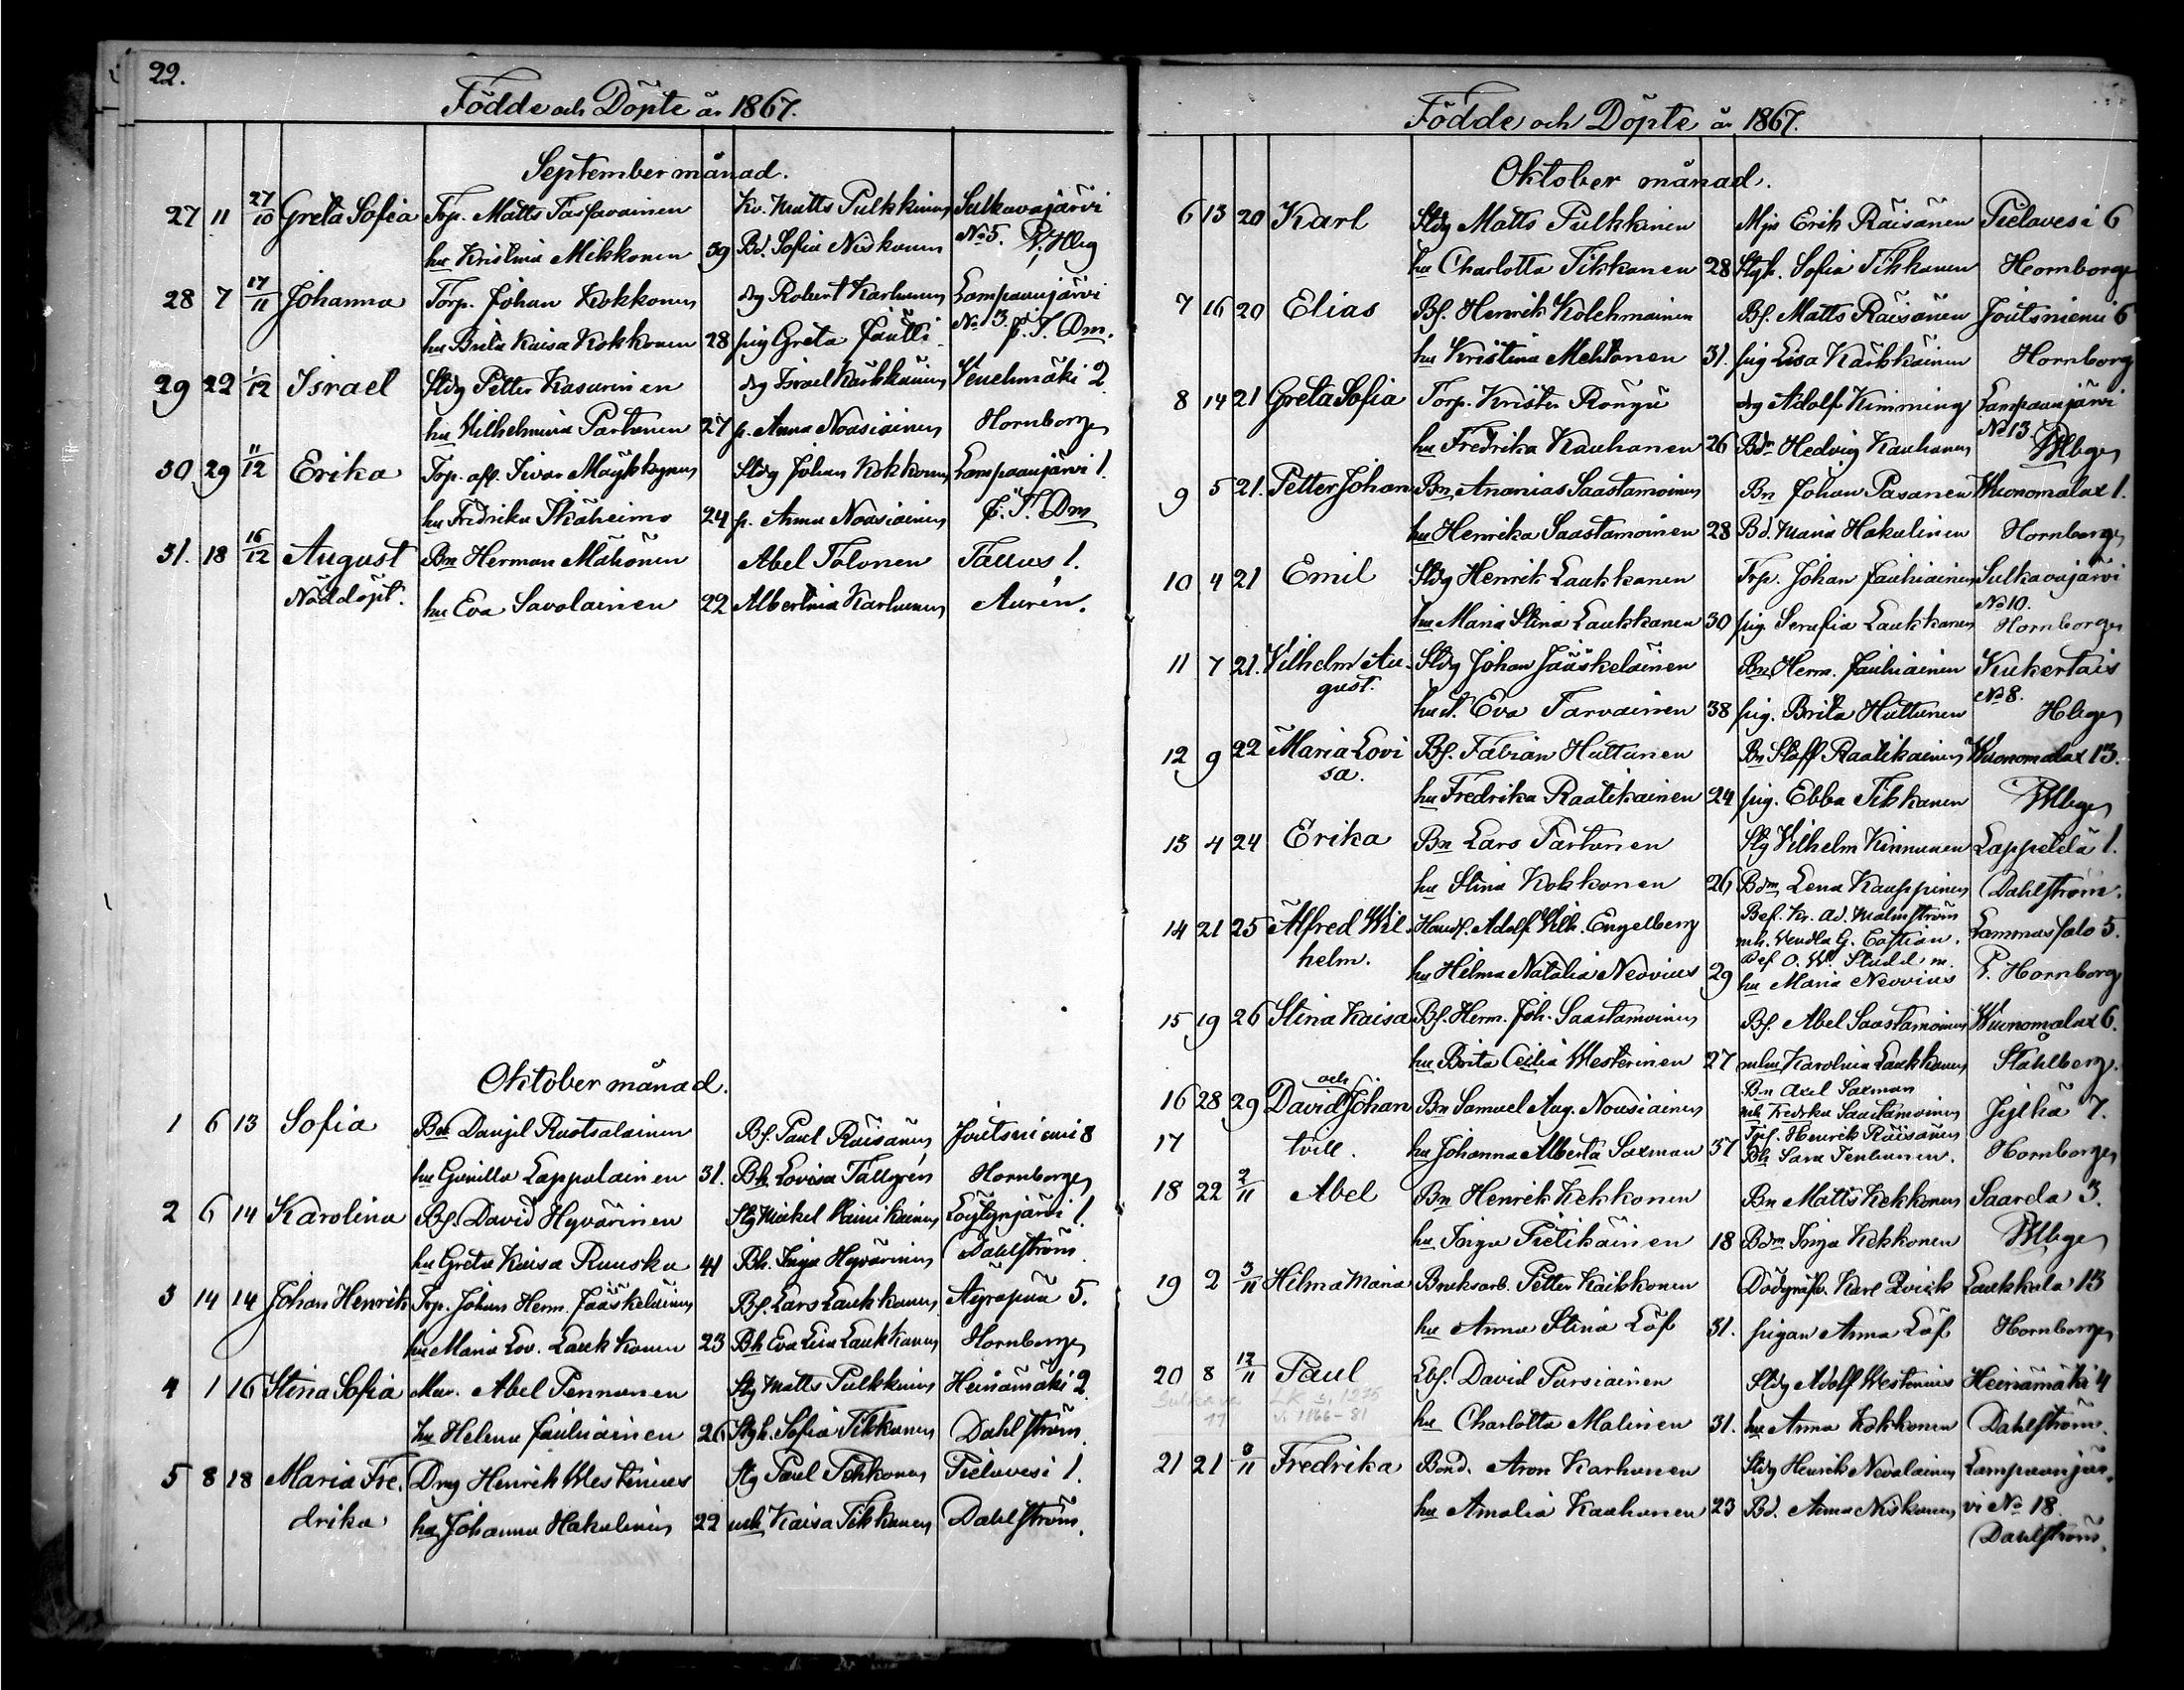 22.
Födde och Döpte år 1867.
September månad.
27 11 27/10 Greta Sofia Trp. Matts Tossavainen Kv. Matts Pulkkinen Sulkavajärvi
hu Kristina Mikkonen 39 Bd. Sofia Niskanen No 5. P. Hbg
28 7 17/11 Johanna Torp. Johan Kokkonen dg Robert Karhunen Lampaanjärvi
hu Brita Kaisa Kokkonen 28 pig Greta Jäntti No 13. p. T. Dm.
29 22 1/12 Israel Stdg Petter Kasurinen dg Israel Kärkkäinen Venehmäki 2
hu Wilhelmina Partanen 27 p. Anna Nousiainen Hornborg
30 29 11/12 Erika Trp. Ivar Stdg Johan Kokkonen Lampaanjärvi 1.
hu Fredrika Ikäheimo 24 p. Anna Nousiainen p. T. Dm
31. 18 16/12 August Bn Herman Mähönen Abel Tolonen Tallus 1.
Nöddöpt. hu Eva Savolainen 22 Albertina Karhunen Aurén.
Oktober månad.
1 6 13 Sofia Bd Daniel Ruotsalainen Bf. Paul Räisänen Joutsniemi 8
hu Gunilla Lappalainen 31. Bh. Lovisa Tallgrén Hornborg
2 6 14 Karolina Bf. David Hyvärinen Stg Mickel Löytynjärvi 1.
hu Greta Kaisa Ruuska 41 Bh. Inga Hyvärinen Dahlström
3 14 14 Johan Henrik Trp. Johan Herm. Jääskeläinen Bf. Lars Laukkanen Äyräpää 5.
hu Maria Lov. Laukkanen 23 Bh Eva Lisa Laukkanen Hornborg
4 1 16 Stina Sofia Mur. Abel Pennanen Stg Matts Pulkkinen Heinämäki 2.
hu Helena Jauhiainen 26 Stgh. Sofia Tikkanen Dahlström
5 8 18 Maria Fre- Drng Henrik Westerinen Stg Paul Tikkanen Pielavesi 1.
drika hu Johanna Hakulinen 22 mh Kaisa Tikkanen Dahlström.
Födde och Döpte år 1867.
Oktober månad.
6 13 20 Karl Stdg Matts Pulkkinen Mjn Erik Räisänen Pielavesi 6
hu Charlotta Tikkanen 28 Stgh. Sofia Tikkanen Hornborg
7 16 20 Elias Bf. Henrik Kolehmainen Bf. Matts Räisänen Joutsniemi 6
hu Kristina Mehtonen 31. pig Lisa Kärkkäinen Hornborg
8 14 21 Greta Sofia Torp. Krister Rongu dg Adolf Kimming Lampaanjärvi
hu Fredrika Kauhanen 26 Bdm Hedvig Kauhanen No 13. PHbg
9 5 21. Petter Johan Bn Ananias Saastamoinen Bn Johan Pasanen Wuonomalax 1.
hu Henrika Saastamoinen 28 Bd. Maria Hakulinen Hornborg
10 4 21 Emil Stdg Henrik Laukkanen Trp. Johan Jauhiainen Sulkavajärvi
No 10.
hu Maria Stina Laukkanen 30 pig. Serafia Laukkanen Hornborg
11 7 21. Vilhelm Au- Stdg Johan Jääskeläinen Bn Herm. Jauhiainen Kukertais
gust. hu A. Eva Tarvainen 38 pig. Brita Huttunen No 8. Hbg
12 9 22 Maria Lovi Bf. Fabian Huttunen Bn Staff Raatikainen Wuonomalax 13.
sa. hu Fredrika Raatikainen 24 pig. Ebba Tikkanen PHbg
13 4 24 Erika Bn Lars Partanen Stg Vilhelm Kinnunen Lappetelä 1.
hu Stina Kokkonen 26 Bdm Lena Kauppinen Dahlström.
14 21 25 Alfred Wil- Handl. Adolf Vilh. Engelberg Bef. Kr. Ad. Malmström Lammassalo 5.
mh. Vendla G. Castrén.
helm. hu Hilma Natalia Neovius 29 Bef O. W. P. Hornborg
hu Maria Neovius
15 19 26 Stina Kaisa Bf. Herm. Joh. Saastamoinen Bf. Abel Saastamoinen Wuonomalax 6.
hu Brita Cecilia Westerinen 27 mhu Karolina Laukkanen Ståhlberg.
16 28 29 David och Johan Bn Samuel Aug. Nousiainen Bn Axel Saxman Jylhä 7.
mh Fredrika Saastamoinen
17 tvill. hu Johanna Alberta Saxman 37 Henrik Räisänen Hornborg
Bh Sara Tenhunen.
18 22 2/11 Abel Bn Henrik Kekkonen Bn Matts Kekkonen Saarela 3.
hu Inga Pietikäinen 18 Bdm Inga Kekkonen PHbg
19 2 3/11 Hilma Maria Bruksarb. Petter Kaikkonen Dödgräfv. Karl Qvick Laukkala 13
hu Anna Stina Löf 31. pigan Anna Löf Hornborg
20 8 12/11 Paul Lbf. David Pursiainen Stdg Adolf Westerinen Heinämäki 4
hu Charlotta Malinen 31. hu Anna Kokkonen Dahlström.
LK s. 1275
v. 1866-81
21 21 3/11 Fredrika Bond. Aron Karhunen Stdg Henrik Nevalainen Lampaanjär-
hu Amalia Kauhanen 23 Bd. Anna Niskanen vi No 18.
Dahlström.